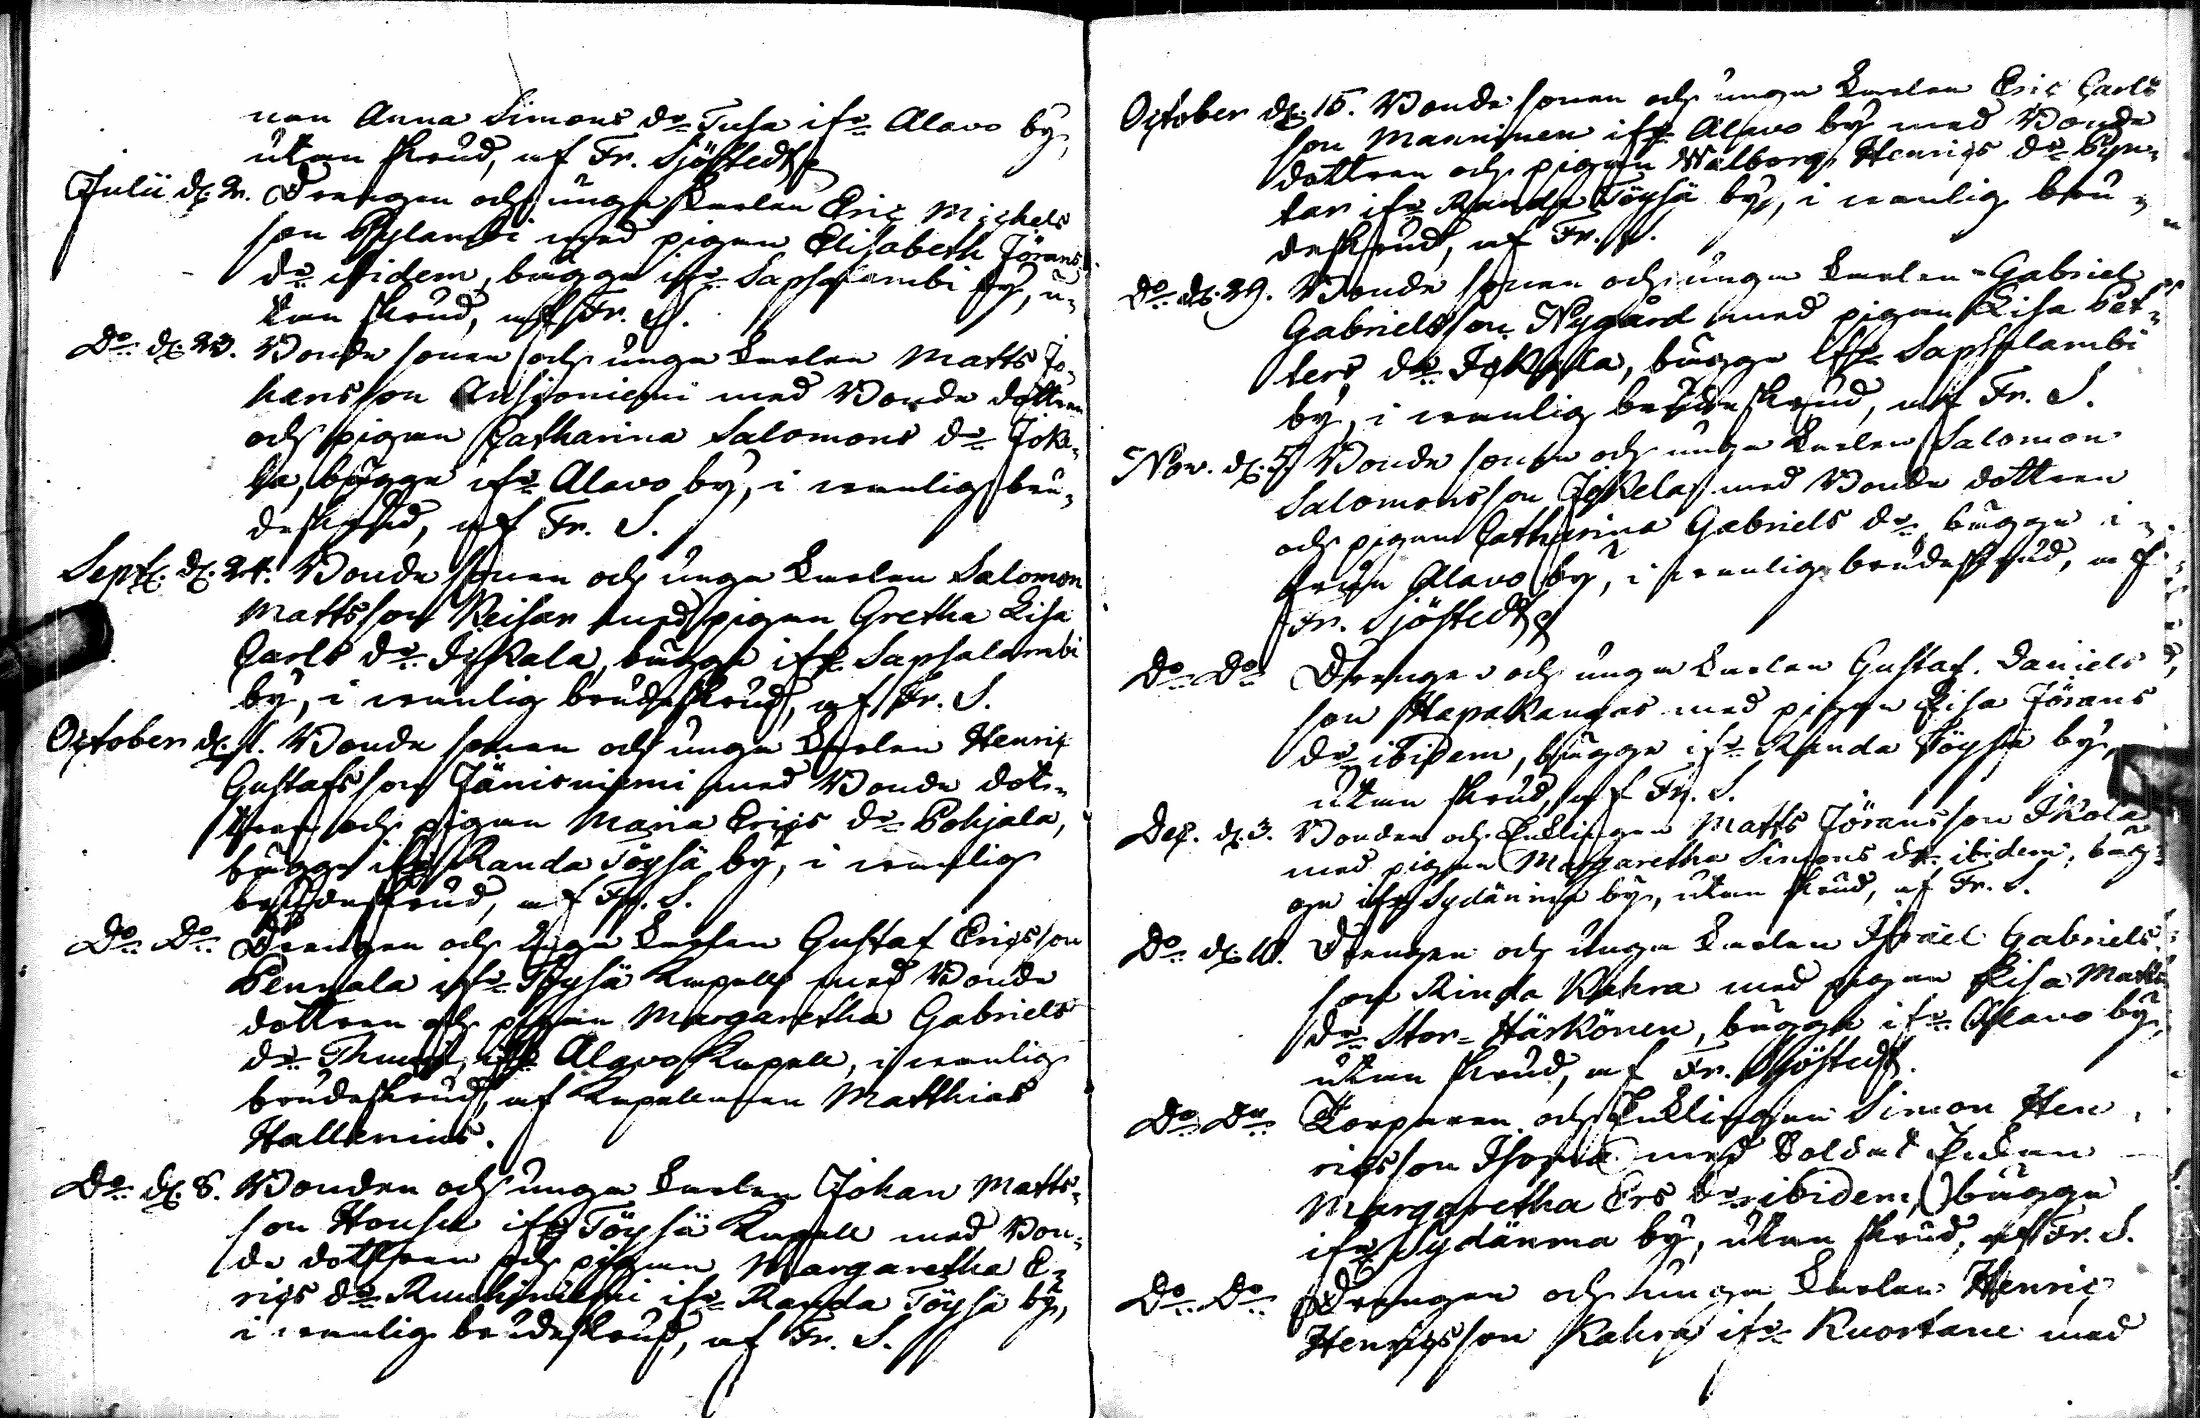 nan Anna Simons dr Tusa ifr Alavo by,
utan skrud, af Fr. Sjöstedt
Julii d. 2. Drengen och unga karlen Eric Michels
son Rylander med pigan Elisabeth Jörans
dr ibidem, bägge ifr Sapsalambi by, u-
tan skrud, af Fr. S.
Do d. 23. Bonde sonen och unga karlen Matts Jo-
hansson Ansioniemi med Bonde dottren
och pigan Catharina Salomons dr Joke-
la, bägge ifr Alavo by, i vanlig bru-
deskrud, af Fr. S.
Sept. d. 24. Bonde sonen och unga karlen Salomon
Mattsson Keisar med pigan Gretha Lisa
Carls dr Jokala, bägge ifr Sapsalambi
by, i vanlig brudeskrud, af Fr. S.
October d. 1. Bonde sonen och unga karlen Henric
Gustafsson Jänisniemi med Bonde dot-
tren och pigan Maria Erics dr Pohjala,
bägge ifr Randa Töysä by, i vanlig
brudeskrud, af Fr. S.
Do Do Drengen och unga karlen Gustaf Ericsson
Pennala ifr Töysä Kapell med Bonde
dottren och pigan Margaretha Gabriels
dr ifr Alavo Kapell, i vanlig
brudeskrud, af Kapellanen Matthias
Hallenius.
Do d. 8. Bonden och unga karlen Johan Matts-
son House ifr Töysä Kapell med Bon-
de dottren och pigan Margaretha E-
rics dr ifr Randa Töysä by,
i vanlig brudeskrud, af Fr. S.
October d. 15. Bonde sonen och unga karlen Eric Carls
son Manninen ifr Alavo by med Bonde
dottren och pigan Walborg Henrics dr Pyn-
tar ifr Randa Töysä by, i vanlig bru-
deskrud, af Fr. S.
Do d. 29. Bonde sonen och unga karlen Gabriel
Gabrielsson Nygård med pigan Lisa Pet-
ters dr Jokela, bägge ifr Sapsalambi
by, i vanlig brudeskrud, af Fr. S.
Nov. d. 5 Bonde sonen och unga karlen Salomon
Salomonsson Jokela med Bonde dottren
och pigan Catharina Gabriels dr bägge i-
från Alavo by, i vanlig brudeskrud, af
Fr. Sjöstedt
Do Do Drengen och unga karlen Gustaf Daniels
son Hapakangas med pigan Lisa Jörans
dr ibidem, bägge ifr Randa Töysä by,
utan skrud, af Fr. S.
Dec. d. 3. Bonden och Enklingen Matts Jöransson Ikola
med pigan Margaretha Simons dr ibidem, bäg-
ge ifr Sydänma by, utan skrud, af Fr. S.
Do d. 10. Drengen och unga karlen Israel Gabriels
son Rinda Kahra med pigan Lisa Matts
dr Stor-Härkönen, bägge ifr Alavo by,
utan skrud, af Fr. Sjöstedt.
Do Do Torparen och Enklingen Simon Hen
ricsson med Soldat Enkan
Margaretha Ers dr ibidem, bägge
ifr Sydänma by, utan skrud, af Fr. S.
Do Do Drengen och unga karlen Henric
Henricsson Kahra ifr Kuortane med